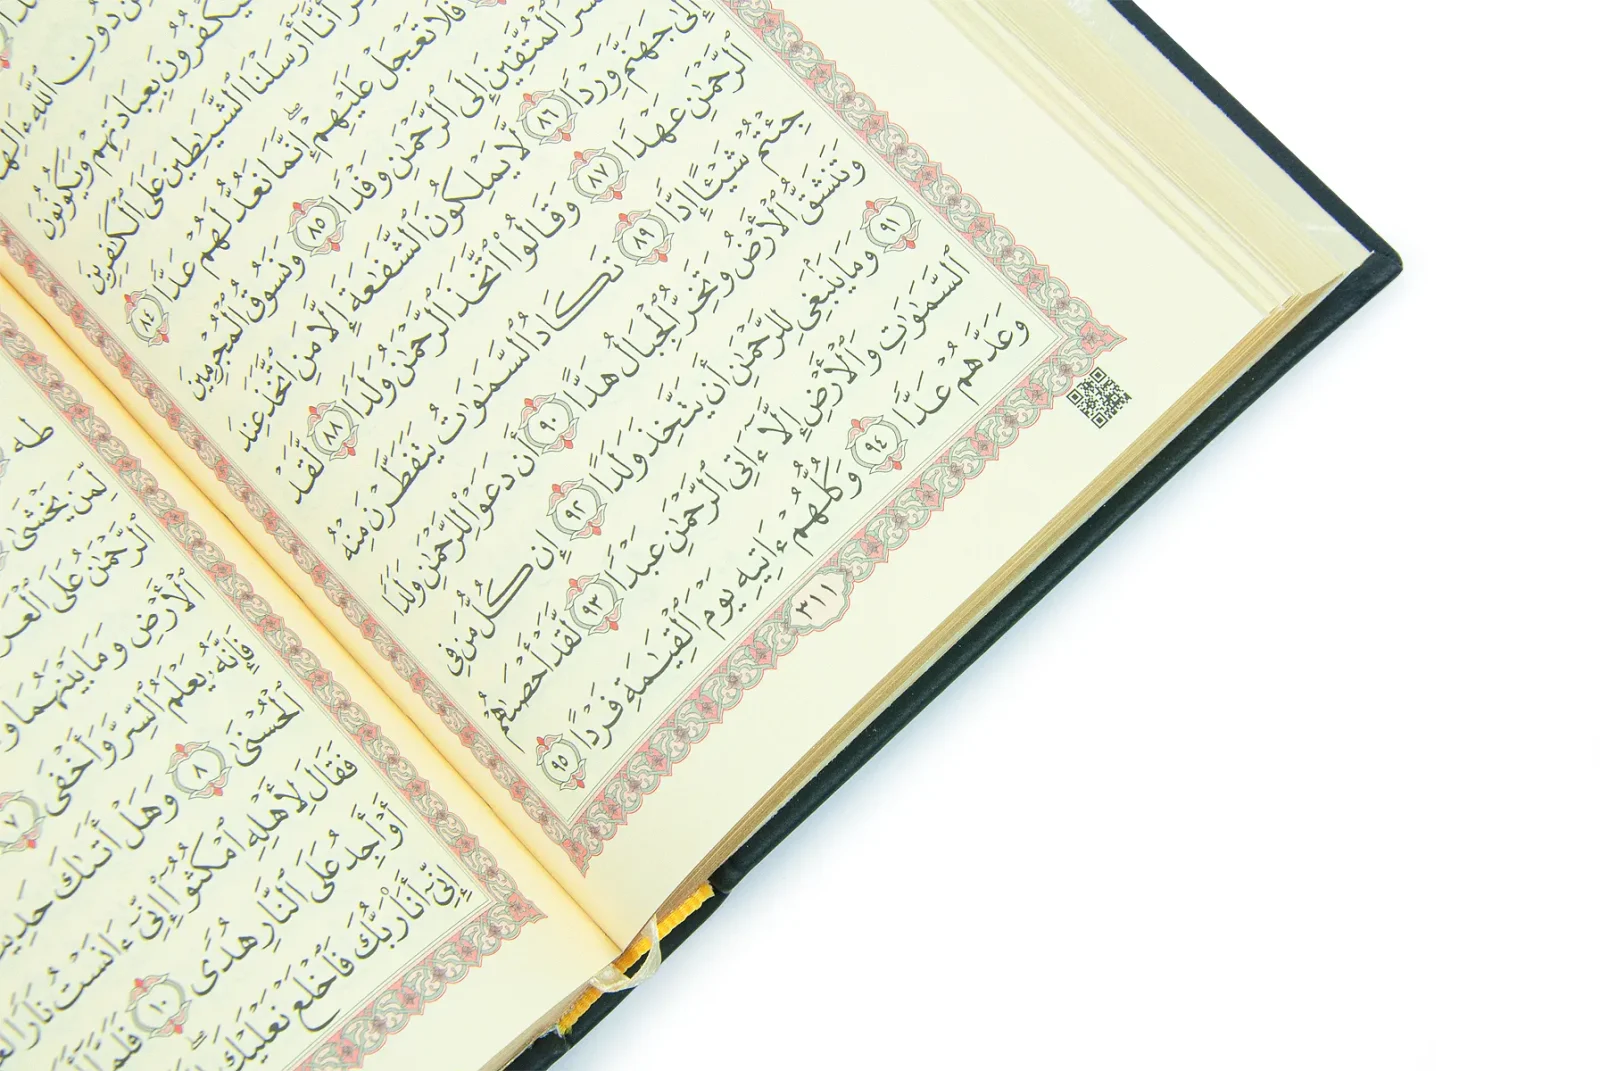 دُونِ ٱللَّهِ
سَيَكْفُرُونَ بِعِبَادَتِهِمْ وَيَكُونُونَ
أَنَّآ أَرْسَلْنَا ٱلشَّيَٰطِينَ عَلَى ٱلْكَٰفِرِينَ
فَلَا تَعْجَلْ عَلَيْهِمْ ۖ إِنَّمَا نَعُدُّ لَهُمْ عَدًّا ٨٤
ٱلْمُتَّقِينَ إِلَى ٱلرَّحْمَٰنِ وَفْدًا ٨٥ وَنَسُوقُ ٱلْمُجْرِمِينَ
إِلَىٰ جَهَنَّمَ وِرْدًا ٨٦ لَّا يَمْلِكُونَ ٱلشَّفَٰعَةَ إِلَّا مَنِ ٱتَّخَذَ عِندَ
ٱلرَّحْمَٰنِ عَهْدًا ٨٧ وَقَالُوا۟ ٱتَّخَذَ ٱلرَّحْمَٰنُ وَلَدًا ٨٨ لَّقَدْ
جِئْتُمْ شَيْـًٔا إِدًّا ٨٩ تَكَادُ ٱلسَّمَٰوَٰتُ يَتَفَطَّرْنَ مِنْهُ
وَتَنشَقُّ ٱلْأَرْضُ وَتَخِرُّ ٱلْجِبَالُ هَدًّا ٩٠ أَن دَعَوْا۟ لِلرَّحْمَٰنِ وَلَدًا
٩١ وَمَا يَنۢبَغِى لِلرَّحْمَٰنِ أَن يَتَّخِذَ وَلَدًا ٩٢ إِن كُلُّ مَن فِى
ٱلسَّمَٰوَٰتِ وَٱلْأَرْضِ إِلَّآ ءَاتِى ٱلرَّحْمَٰنِ عَبْدًا ٩٣ لَّقَدْ أَحْصَىٰهُمْ
وَعَدَّهُمْ عَدًّا ٩٤ وَكُلُّهُمْ ءَاتِيهِ يَوْمَ ٱلْقِيَٰمَةِ فَرْدًا ٩٥
٣١١
طه
لِّمَن يَخْشَىٰ
ٱلرَّحْمَٰنُ عَلَى
ٱلْأَرْضِ وَمَا بَيْنَهُمَا
فَإِنَّهُۥ يَعْلَمُ ٱلسِّرَّ وَأَخْفَى ٧
ٱلْحُسْنَىٰ ٨ وَهَلْ أَتَىٰكَ
فَقَالَ لِأَهْلِهِ ٱمْكُثُوٓا۟ إِنِّىٓ ءَانَسْتُ نَارًا
أَوْ أَجِدُ عَلَى ٱلنَّارِ هُدًى ١٠ فَلَمَّآ
إِنِّىٓ أَنَا۠ رَبُّكَ فَٱخْلَعْ نَعْلَيْكَ